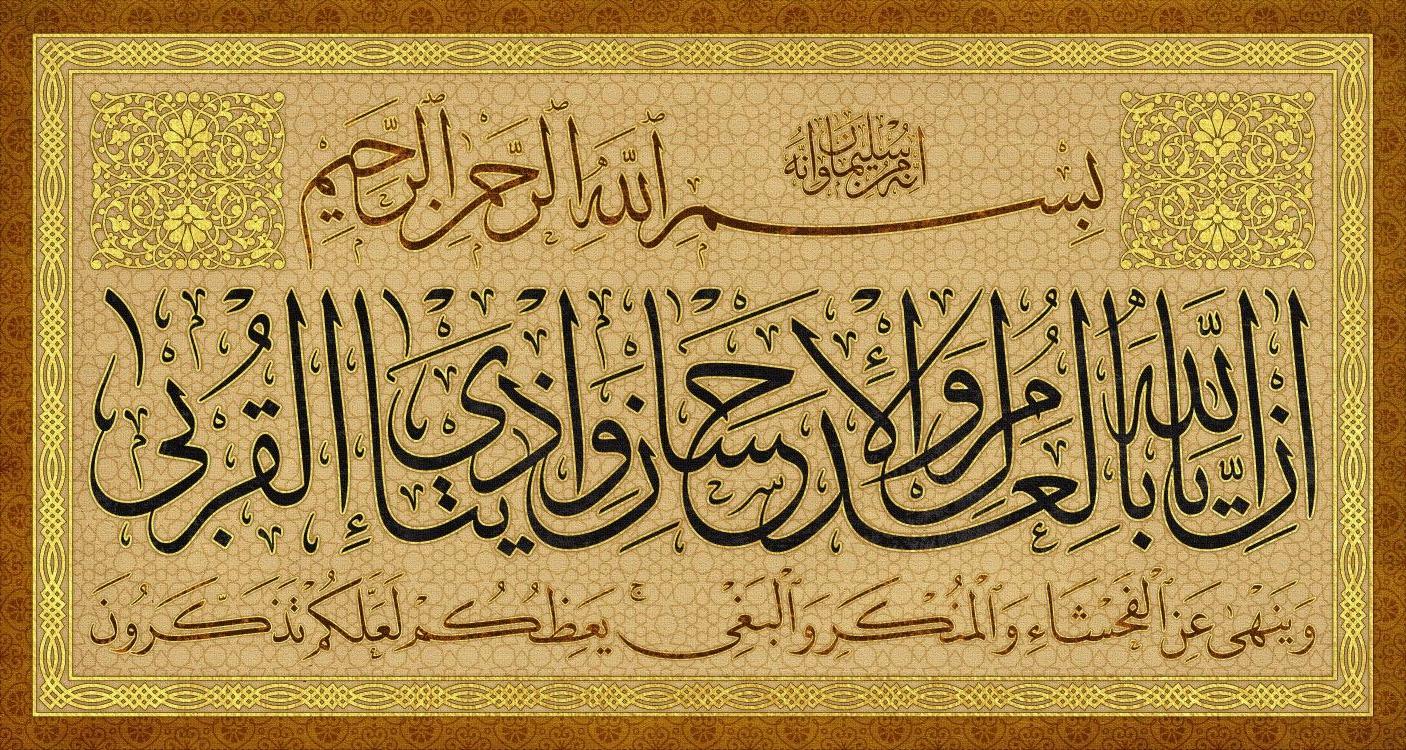 إنه من سليمان وإنه
بسم الله الرحمن الرحيم
إن الله يأمر بالعدل والإحسان وإيتاء ذي القربى
وَيَنْهَىٰ عَنِ الْفَحْشَاءِ وَالْمُنْكَرِ وَالْبَغْيِ ۚ يَعِظُكُمْ لَعَلَّكُمْ تَذَكَّرُونَ